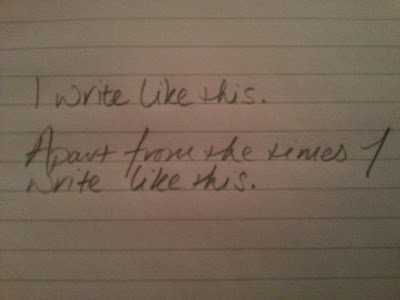 I write like this.
Apart from the times I
write like this.